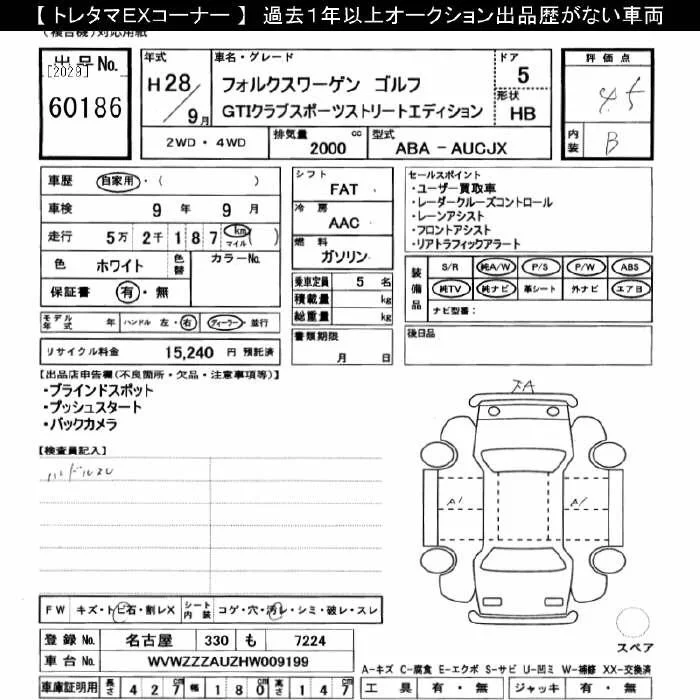 【 トレタマEXコーナー 】 過去1年以上オークション出品歴がない車両
(複合機)対応用紙
出品No.
[2029]
60186
年式
H28/9月
車名・グレード
フォルクスワーゲン ゴルフ
GTIクラブスポーツストリートエディション
ドア
5
形状
HB
2WD・4WD
排気量
2000 cc
型式
ABA - AUCJX
評価点
4.5
内装
B
車歴 自家用・( )
車検 9年 9月
走行 5万 2千 187 km マイル ( )
色 ホワイト 色替 カラーNo.
保証書 有・無
シフト
FAT
冷房
AAC
燃料
ガソリン
乗車定員 5 名
積載量 kg
総重量 kg
セールスポイント
・ユーザー買取車
・レーダークルーズコントロール
・レーンアシスト
・フロントアシスト
・リアトラフィックアラート
装備品
S/R 純A/W P/S P/W ABS
純TV 純ナビ 革シート 外ナビ エアB
ナビ型番:
モデル年式 年 ハンドル 左・右 ディーラー・並行
リサイクル料金 15,240 円 預託済
書類期限
月 日
後日品
【出品店申告欄(不良箇所・欠品・注意事項等)】
・ブラインドスポット
・プッシュスタート
・バックカメラ
【検査員記入】
ハンドルスレ
A
A1 A1
FW キズ・トビ石・割レX シート内装 コゲ・穴・汚レ・シミ・破レ・スレ
登録No. 名古屋 330 も 7224
車台No. WVWZZZAUZHW009199
車庫証明用 長さ 427cm 幅 180cm 高さ 147cm
スペア
A-キズ C-腐食 E-エクボ S-サビ U-凹ミ W-補修 XX-交換済
工具 有・無 ジャッキ 有・無